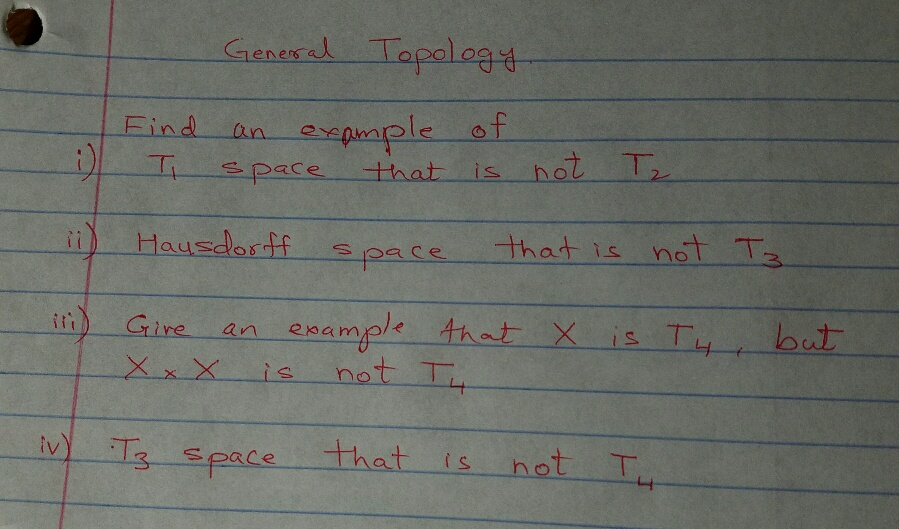 General Topology.
Find an example of
i) T₁ space that is not T₂
ii) Hausdorff space that is not T₃
iii) Give an example that X is T₄, but
X × X is not T₄
iv) T₃ space that is not T₄